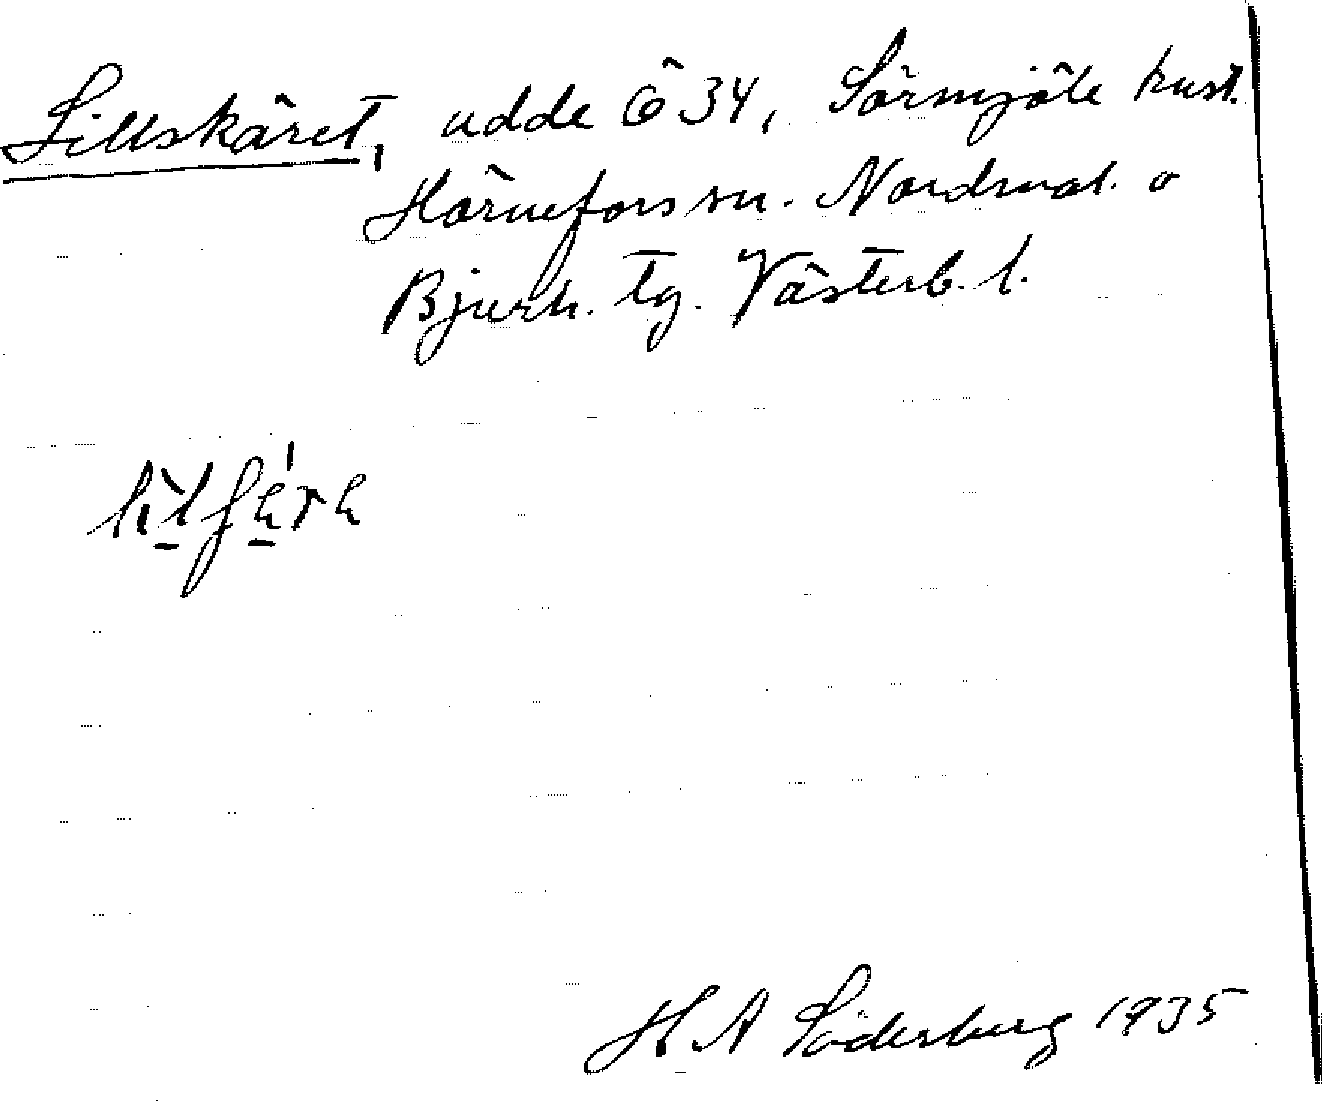 Lillskäret, udde Ö 34, Sörmjöle kust.
Hörnefors sn. Nordmal. o
Bjurh. tg. Västerb. l.
H A Söderberg 1935